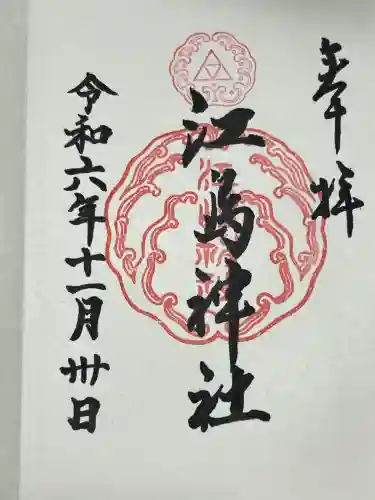 奉拝
江島神社
令和六年十一月卅日